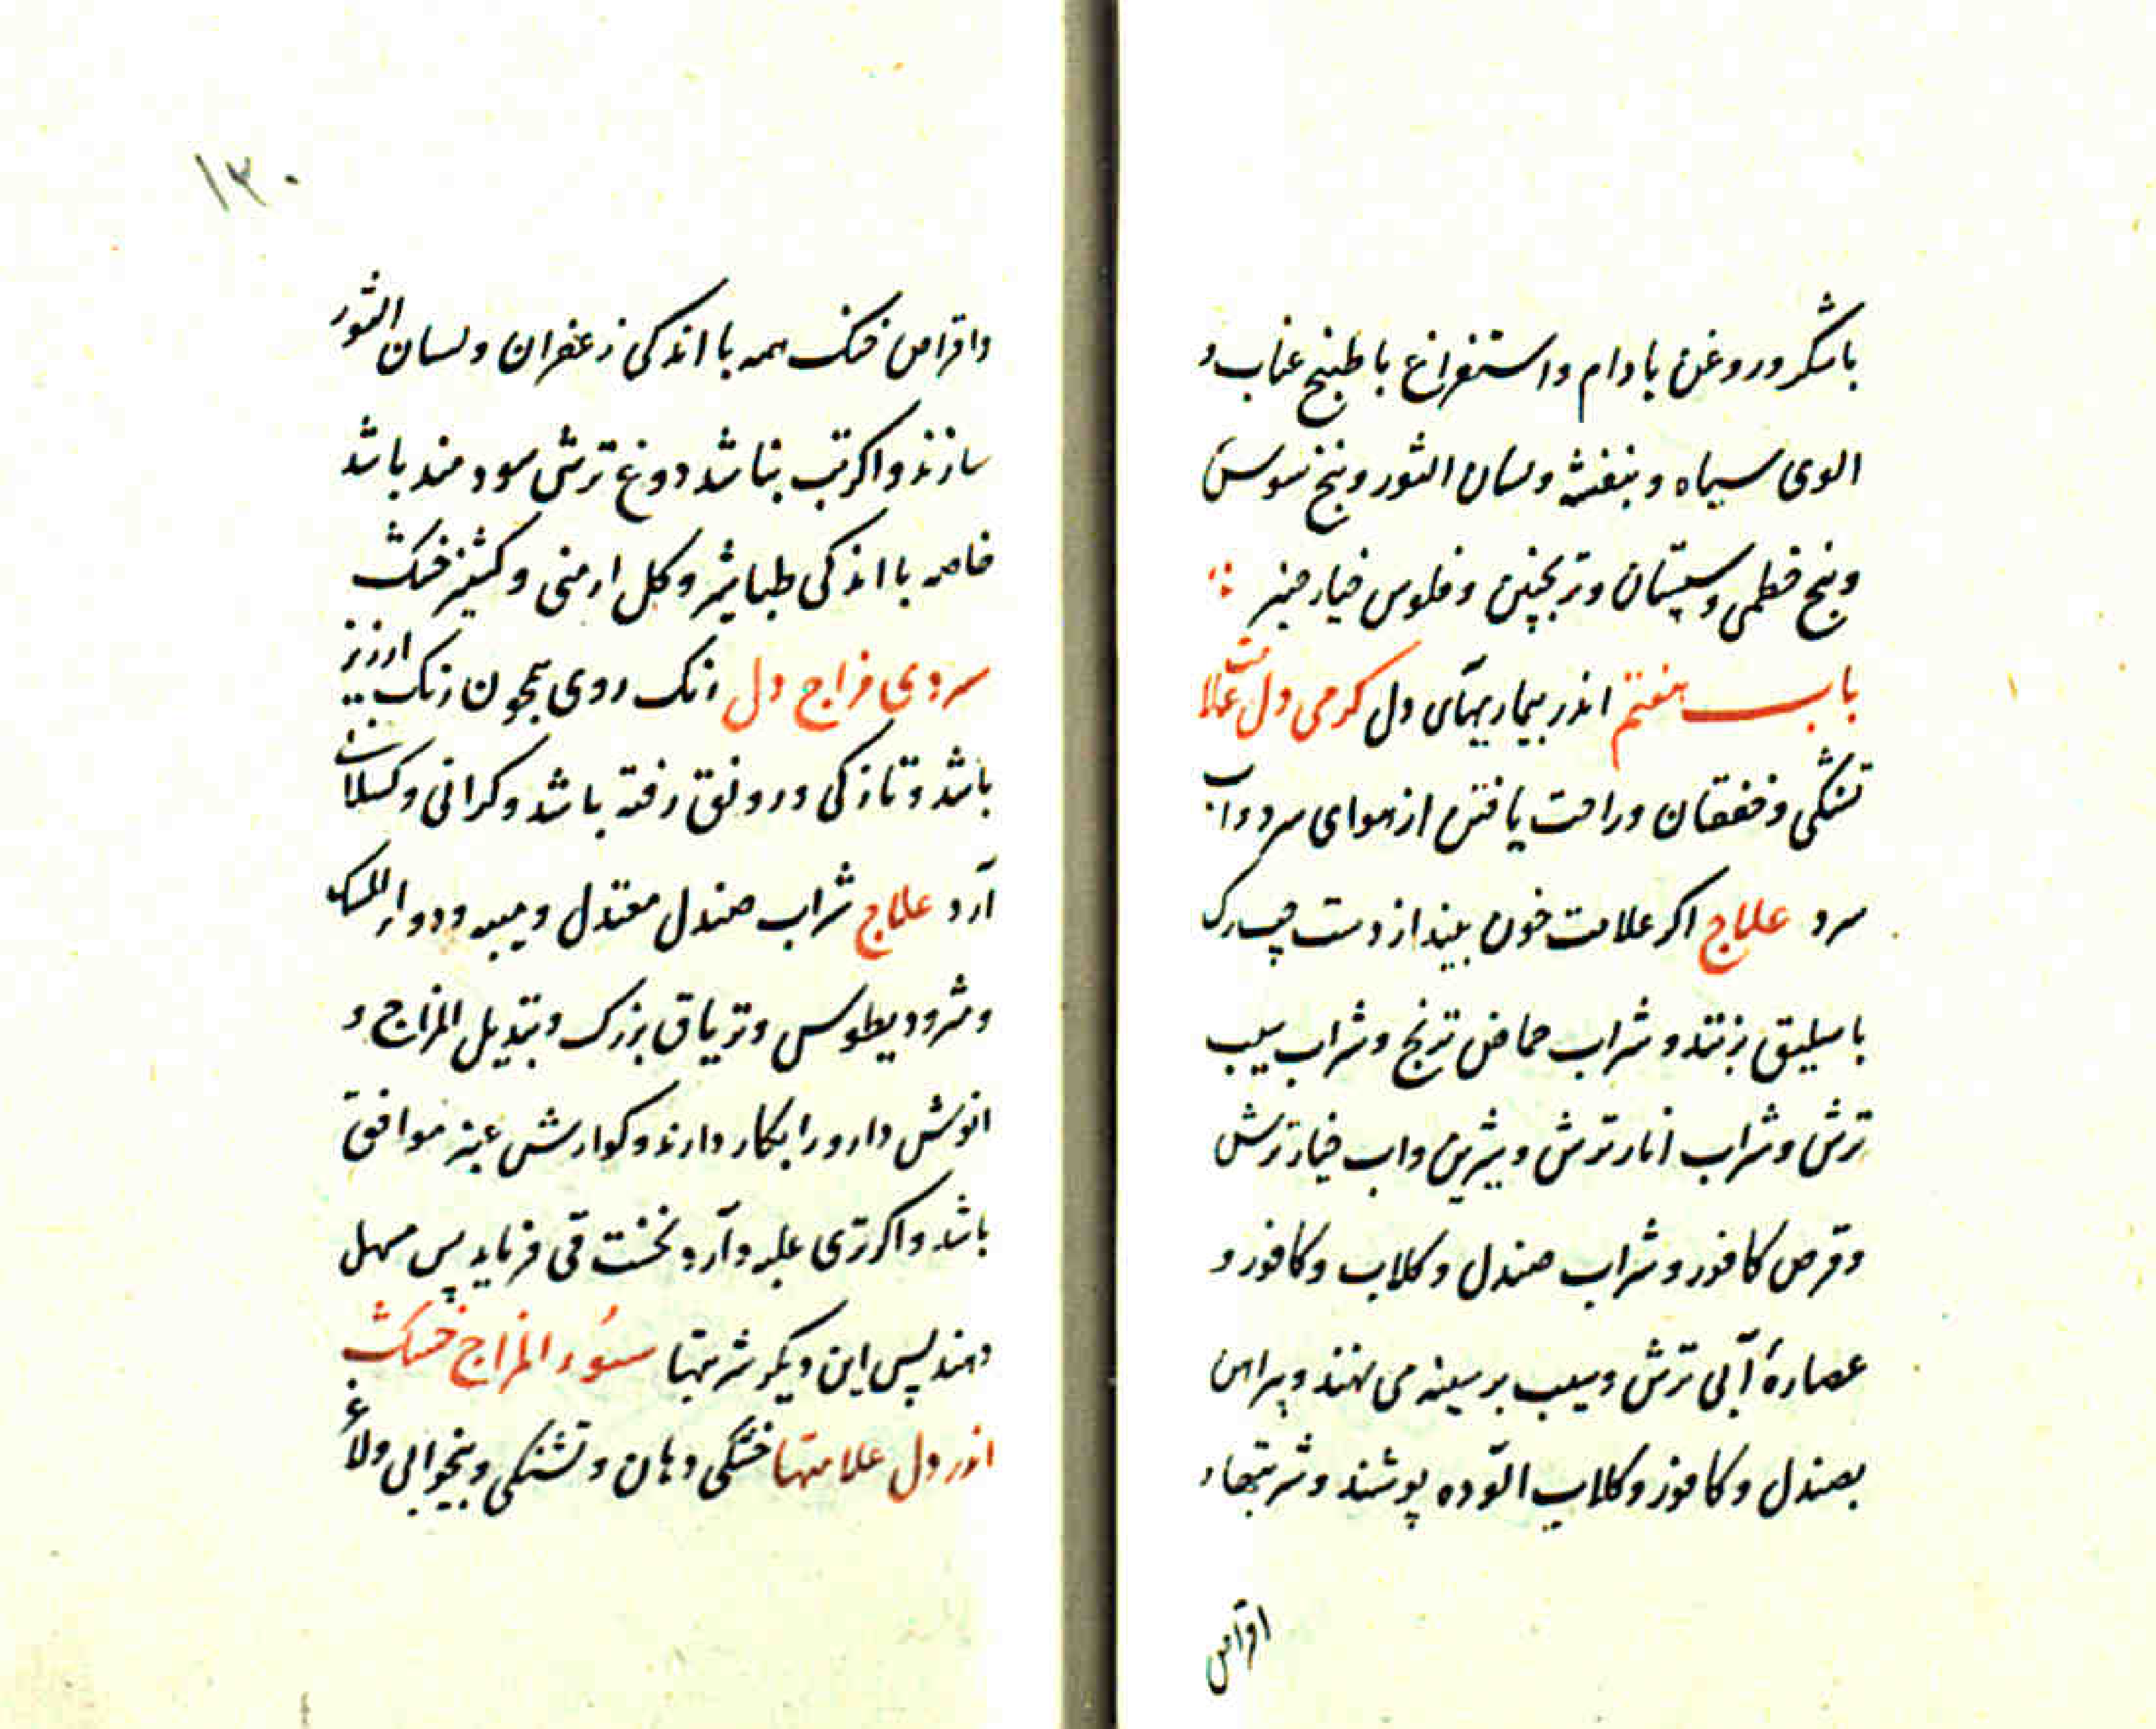 باشکر و روغن بادام واستفراغ با طبیخ عناب و
الوی سیاه و بنفشه ولسان الثور و بیخ سوسن
و بیخ خطمی و سپستان و ترنجبین و فلوس خیارچنبر
باب هفتم اندر بیماریهآی دل کرمی دل علامت
تشنکی و خفقان و راحت یافتن از هوای سرد و آب
سرد علاج اکر علامت خون بیند از دست چپ رک
باسلیق بزنند و شراب حماض ترنج و شراب سیب
ترش و شراب انار ترش و شیرین واب خیار ترش
و قرص کافور و شراب صندل و کلاب و کافور و
عصارهٔ آبی ترش و سیب بر سینه می نهند و پیراهن
بصندل و کافور و کلاب الوده پوشند و شربتهاء
اقراص
۱۳۰
واقراص خنک همه با اندکی زعفران و لسان الثور
سازند و اکر تب نباشد دوغ ترش سودمند باشد
خاصه با اندکی طباشیر و کل ارمنی و کشنیز خشک
سردی مزاج دل رنک روی همچون رنک ارزیز
باشد و تازکی و رونق رفته باشد و کرانی و کسلانی
آرد علاج شراب صندل معتدل و میبه و دواء المسک
و مثرودیطوس و تریاق بزرک و تبدیل المزاج و
انوش دارو را بکار دارند و کوارش عنبر موافق
باشد و اکر تری غلبه دارد نخست قی فرماید پس مسهل
دهند پس این دیکر شربتها سوء المزاج خشک
اندر دل علامتها خشکی دهان و تشنکی و بیخوابی و لاغ